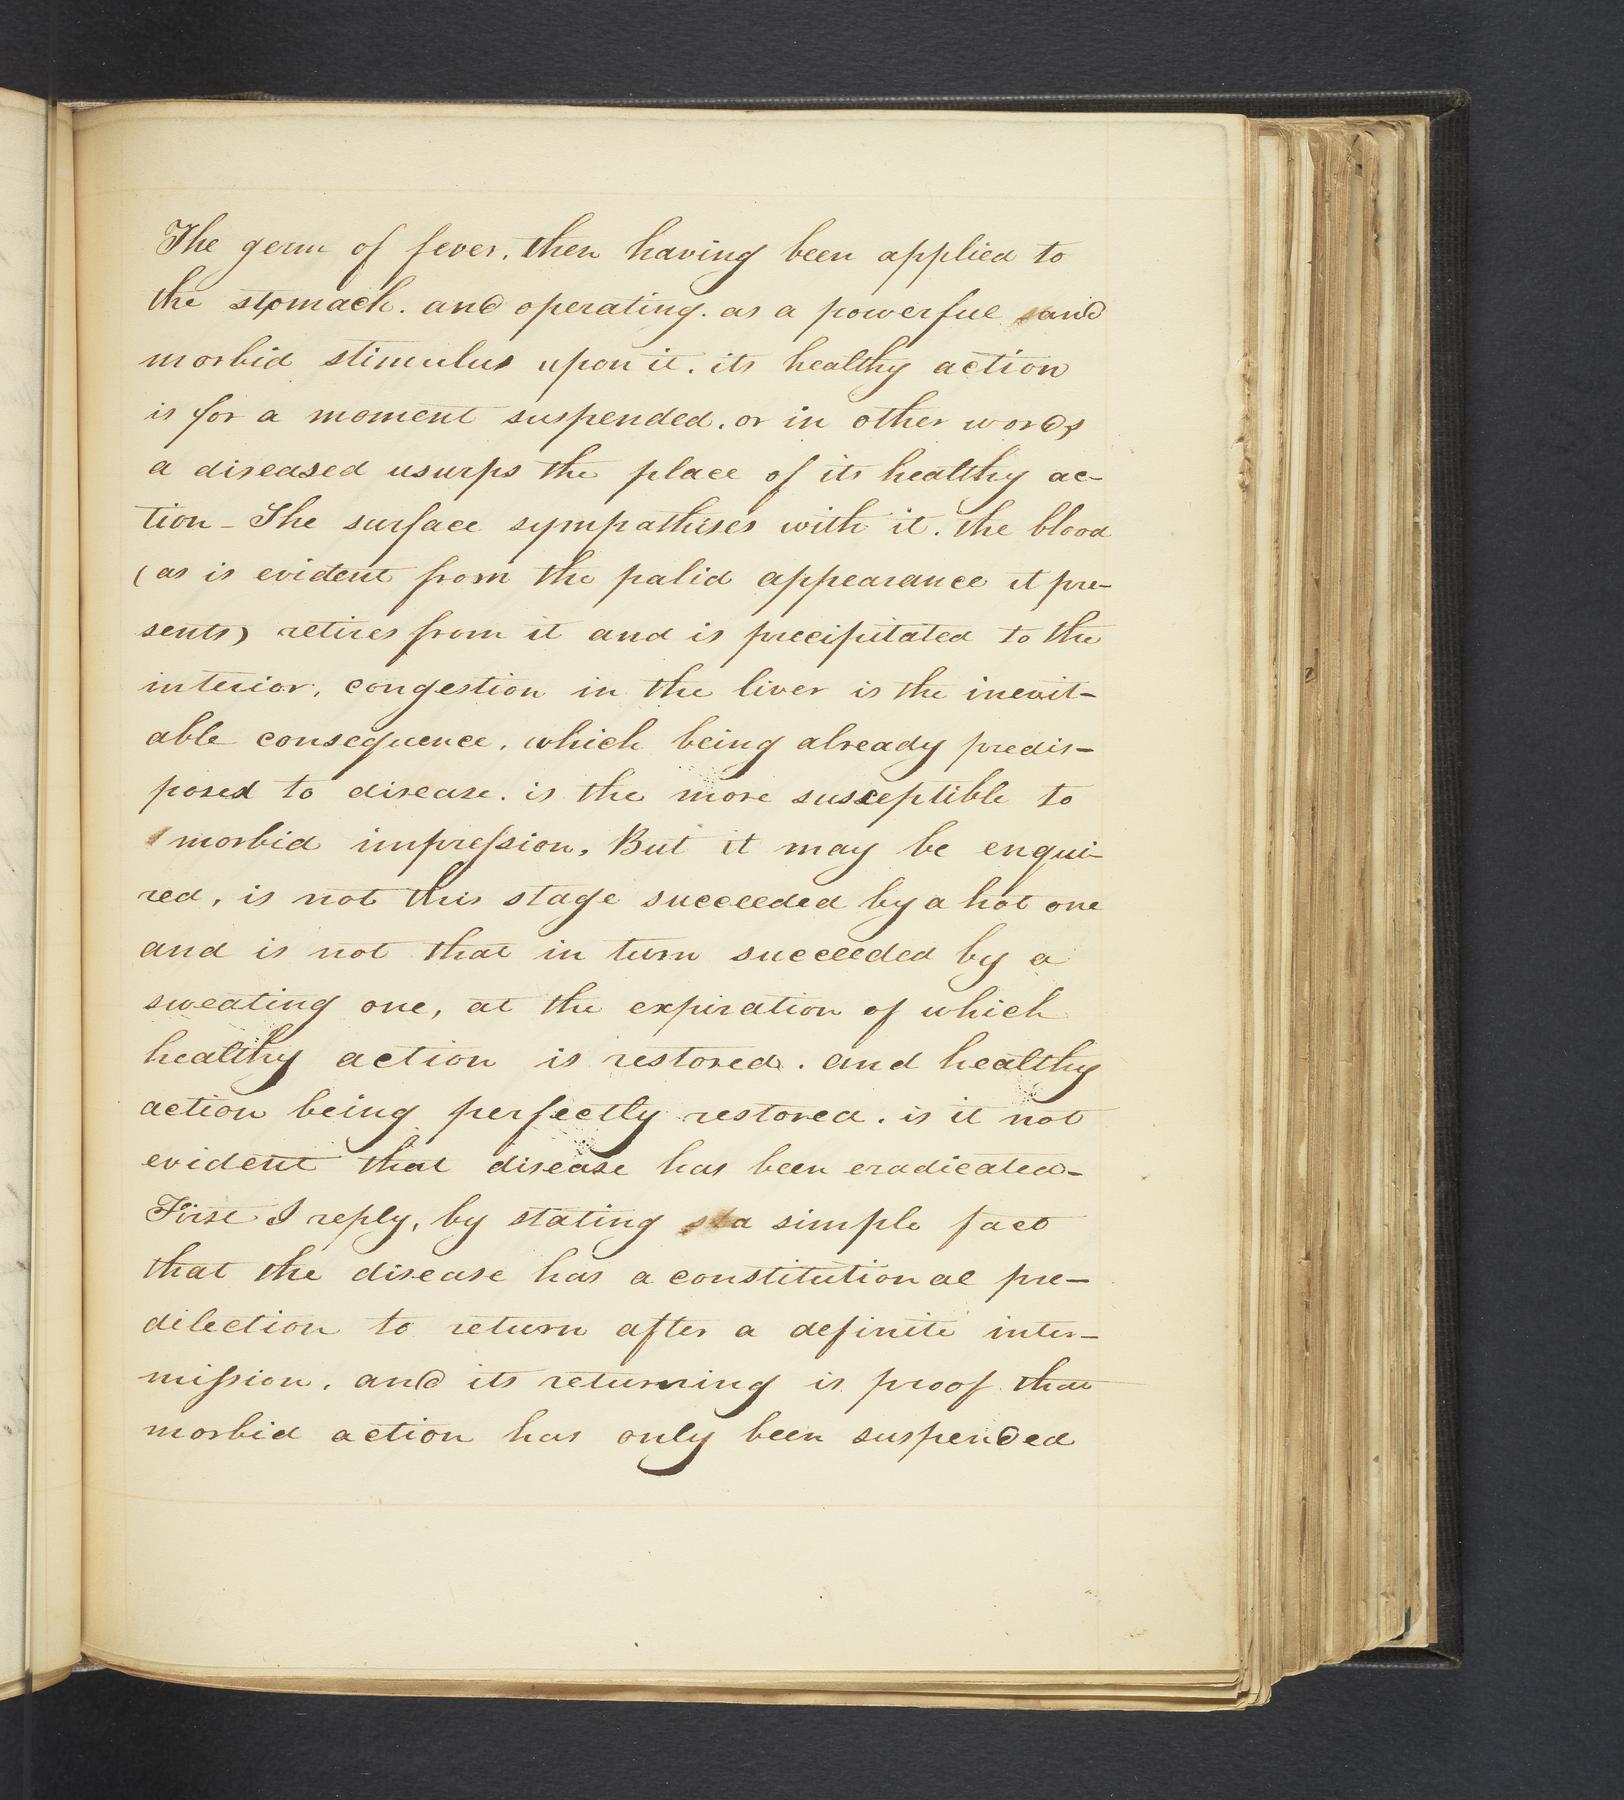 The germ of fever, then having been applied to
the stomach. and operating. as a powerful and
morbid stimulus upon it. its healthy action
is for a moment suspended. or in other words
a diseased usurps the place of its healthy ac-
tion - The surface sympathises with it. the blood
(as is evident from the palid appearance it pre-
sents) retires from it and is precipitated to the
interior, congestion in the liver is the inevit-
able consequence, which being already predis-
posed to disease. is the more susceptible to
morbid impression, But it may be enqui-
red, is not this stage succeeded by a hot one
and is not that in turn succeeded by a
sweating one, at the expiration of which
healthy action is restored. and healthy
action being perfectly restored. is it not
evident that disease has been eradicated-
First I reply, by stating a simple fact
that the disease has a constitutional pre-
dilection to return after a definite inter-
mission, and its returning is proof that
morbid action has only been suspended